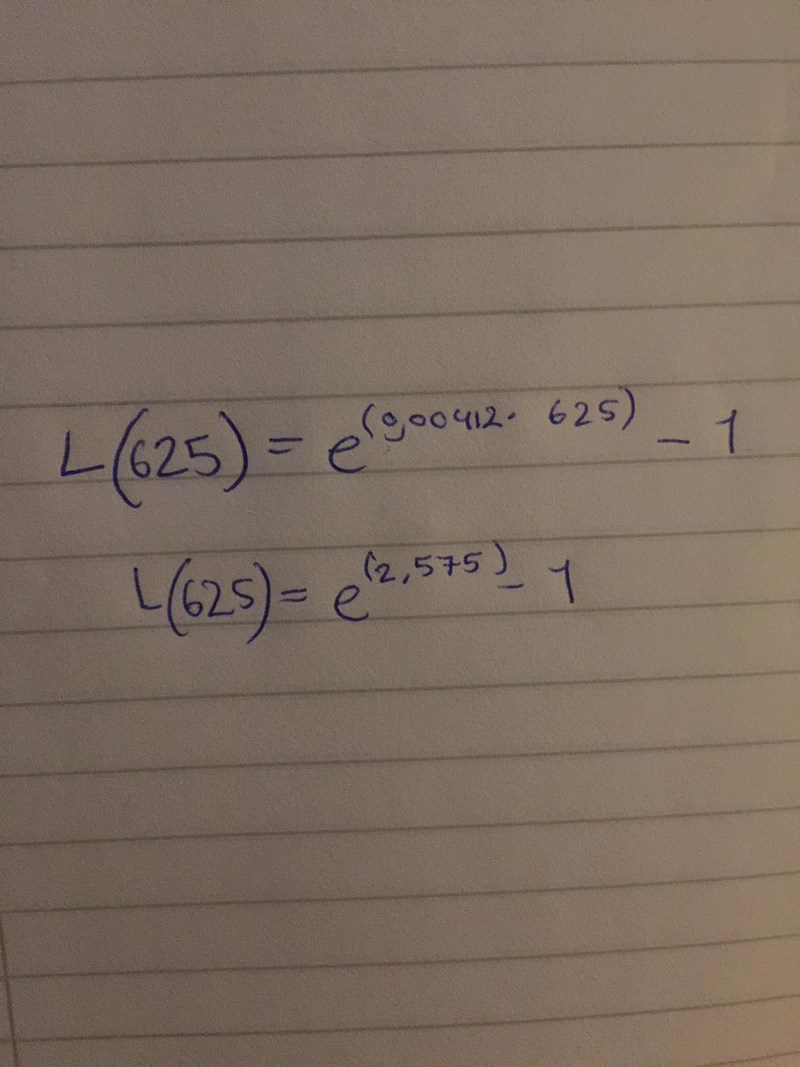 L(625) = e^(0,00412· 625) - 1
L(625) = e^(2,575) - 1